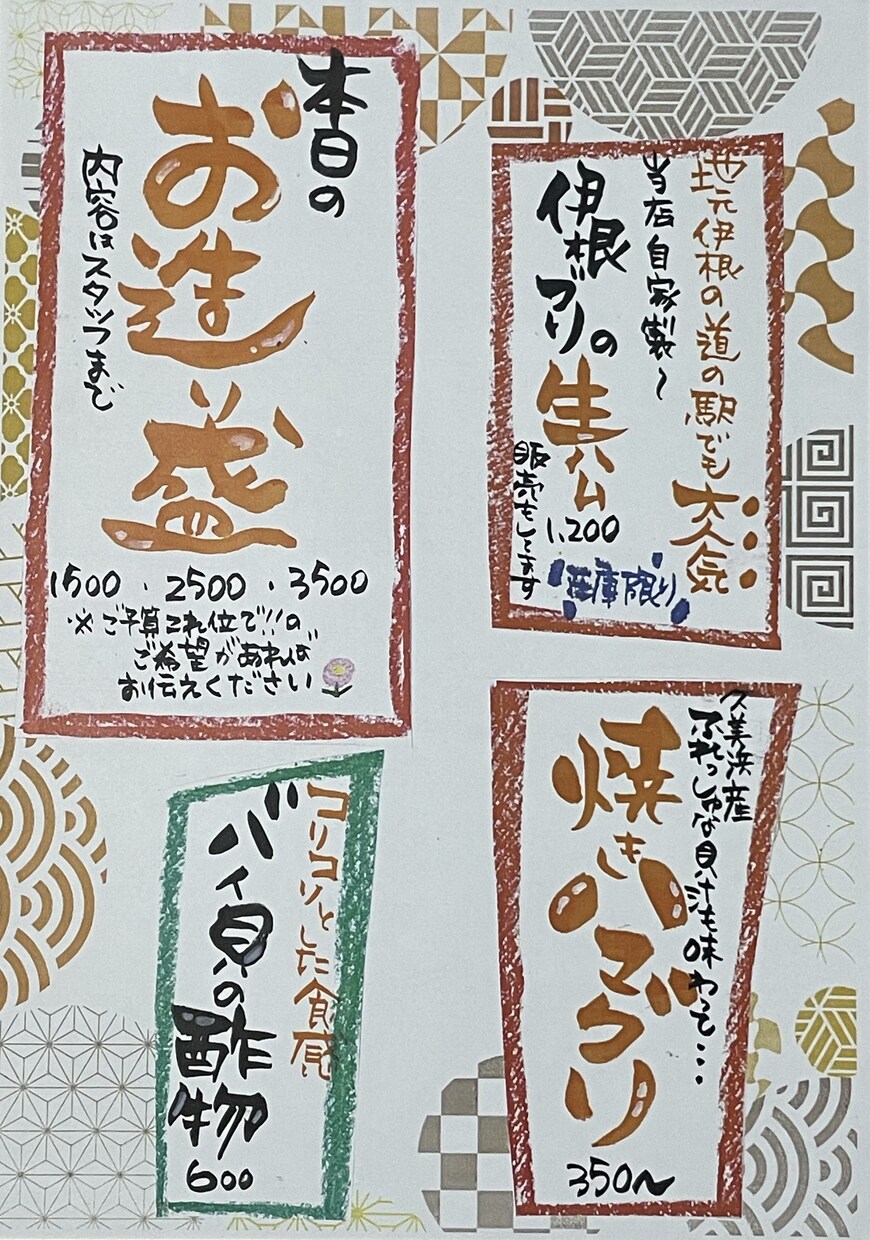 本日の
お造り盛
内容はスタッフまで
1500・2500・3500
※ご予算これ位で!!の
ご希望があれば
お伝えください
地元伊根の道の駅でも大人気...
当店自家製～
伊根ブリの生ハム
1,200
販売もしてます
在庫限り
コリコリとした食感
バイ貝の酢物
600
久美浜産
ふれっしゅな貝汁も味わって...
焼きハマグリ
350～